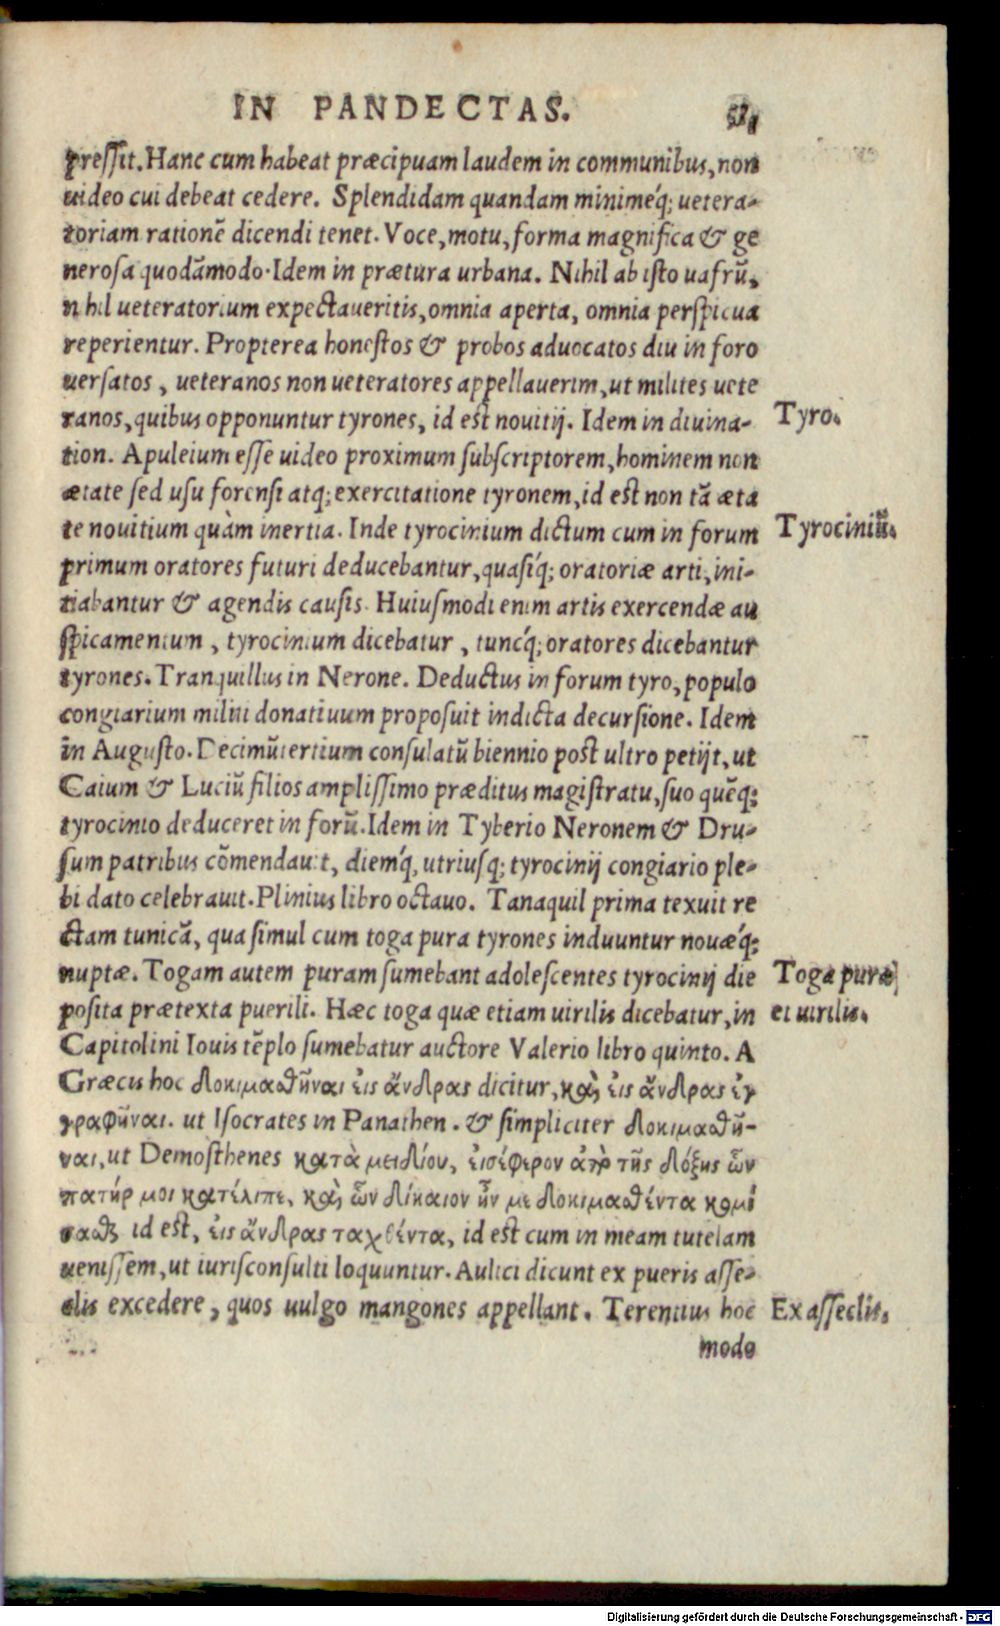 IN PANDECTAS.
pressit. Hanc cum habeat præcipuam laudem in communibus, non
uideo cui debeat cedere. Splendidam quandam minimeq́; uetera-
toriam rationē dicendi tenet. Voce, motu, forma magnifica & ge
nerosa quodāmodo. Idem in prætura urbana. Nihil ab isto uafrū,
nihil ueteratorium expectaueritis, omnia aperta, omnia perspicua
reperientur. Propterea honestos & probos aduocatos diu in foro
uersatos, ueteranos non ueteratores appellauerim, ut milites uete
ranos, quibus opponuntur tyrones, id est nouitij. Idem in diuina-
Tyro.
tion. Apuleium esse uideo proximum subscriptorem, hominem non
ætate sed usu forensi atq; exercitatione tyronem, id est non tā æta
te nouitium quàm inertia. Inde tyrocinium dictum cum in forum
Tyrociniū.
primum oratores futuri deducebantur, quasiq́; oratoriæ arti, ini-
tiabantur & agendis causis. Huiusmodi enim artis exercendæ au
spicamentum, tyrocinium dicebatur, tuncq́; oratores dicebantur
tyrones. Tranquillus in Nerone. Deductus in forum tyro, populo
congiarium militi donatiuum proposuit indicta decursione. Idem
in Augusto. Decimūtertium consulatū biennio post ultro petijt, ut
Caium & Luciū filios amplissimo præditus magistratu, suo quēq;
tyrocinio deduceret in forū. Idem in Tyberio Neronem & Dru-
sum patribus cōmendauit, diemq́, utriusq; tyrocinij congiario ple-
bi dato celebrauit. Plinius libro octauo. Tanaquil prima texuit re
ctam tunicā, qua simul cum toga pura tyrones induuntur nouæq́;
nuptæ. Togam autem puram sumebant adolescentes tyrocinij die
Toga pura
posita prætexta puerili. Hæc toga quæ etiam uirilis dicebatur, in
et uirilis.
Capitolini Iouis tēplo sumebatur auctore Valerio libro quinto. A
Græcis hoc δοκιμαθῆναι εἰς ἄνδρας dicitur, καὶ εἰς ἄνδρας ἐγ
γραφῆναι. ut Isocrates in Panathen. & simpliciter δοκιμαθῆ-
ναι, ut Demosthenes κατὰ μειδίου, εἰσέφερον ἀπὸ τῆς δόξης ὧν
πατήρ μοι κατέλιπε, καὶ ὧν δίκαιον ἦν με δοκιμαθέντα κομί
σαθζ id est, εἰς ἄνδρας ταχθέντα, id est cum in meam tutelam
uenissem, ut iurisconsulti loquuntur. Aulici dicunt ex pueris asse-
clis excedere, quos uulgo mangones appellant. Terentius hoc
Ex asseclis.
modo
Digitalisierung gefördert durch die Deutsche Forschungsgemeinschaft - DFG